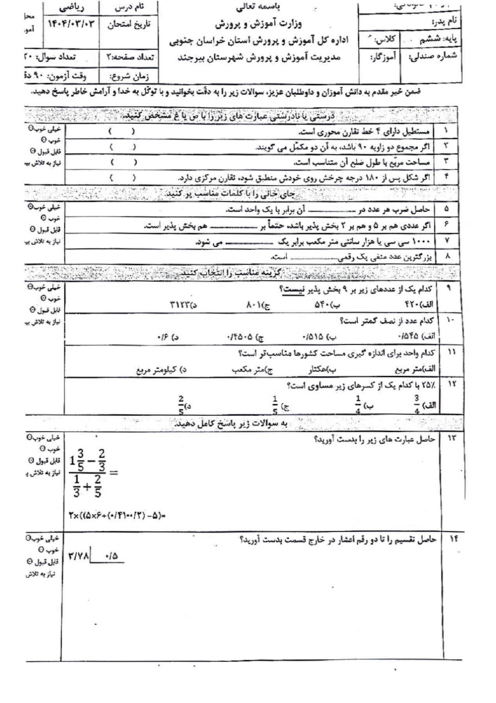 باسمه تعالی
وزارت آموزش و پرورش
اداره کل آموزش و پرورش استان خراسان جنوبی
مدیریت آموزش و پرورش شهرستان بیرجند
نام پدر:
پایه: ششم کلاس:
شماره صندلی: آموزگار:
نام درس ریاضی
تاریخ امتحان ۱۴۰۴/۰۳/۰۳
تعداد صفحه:۲ تعداد سوال: ۲۰
زمان شروع: وقت آزمون: ۹۰
ضمن خیر مقدم به دانش آموزان و داوطلبان عزیز، سوالات زیر را به دقت بخوانید و با توکل به خدا و آرامش خاطر پاسخ دهید.
درستی یا نادرستی عبارت های زیر را با ص یا غ مشخص کنید.
۱ مستطیل دارای ۴ خط تقارن محوری است. ( )
۲ اگر مجموع دو زاویه ۹۰ باشد، به آن دو مکمل می گویند. ( )
۳ مساحت مربع با طول ضلع آن متناسب است. ( )
۴ اگر شکل پس از ۱۸۰ درجه چرخش روی خودش منطبق شود، تقارن مرکزی دارد. ( )
خیلی خوب
خوب
قابل قبول
جای خالی را با کلمات مناسب پر کنید.
۵ حاصل ضرب هر عدد در ــــــــ آن برابر با یک واحد است.
۶ اگر عددی هم بر ۵ و هم بر ۲ بخش پذیر باشد، حتماً بر ــــــــ هم بخش پذیر است.
۷ ۱۰۰۰ سی سی یا هزار سانتی متر مکعب برابر یک ــــــــ می شود.
۸ بزرگترین عدد منفی یک رقمی ــــــــ است.
خیلی خوب
خوب
قابل قبول
گزینه مناسب را انتخاب کنید.
۹ کدام یک از عددهای زیر بر ۹ بخش پذیر نیست؟
الف)۴۲۰ ب)۵۴۰ ج)۸۰۱ د)۳۱۲۳
۱۰ کدام عدد از نصف کمتر است؟
الف) ۰/۵۴۵ ب)۰/۵۱۵ ج) ۰/۴۵۰۵ د) ۰/۶
۱۱ کدام واحد برای اندازه گیری مساحت کشورها مناسب‌تر است؟
الف)متر مربع ب)هکتار ج)متر مکعب د) کیلومتر مربع
۱۲ ۲۵٪ با کدام یک از کسرهای زیر مساوی است؟
الف) 3/4 ب) 1/4 ج) 1/5 د) 2/5
خیلی خوب
خوب
قابل قبول
به سوالات زیر پاسخ کامل دهید.
۱۳ حاصل عبارت های زیر را بدست آورید؟
1 3/5 − 2/3
1/3 + 2/5 =
خیلی خوب
خوب
قابل قبول
۱۴ حاصل تقسیم را تا دو رقم اعشار در خارج قسمت بدست آورید؟
۳/۷۸ ۰/۵
خیلی خوب
خوب
قابل قبول
نیاز به تلاش